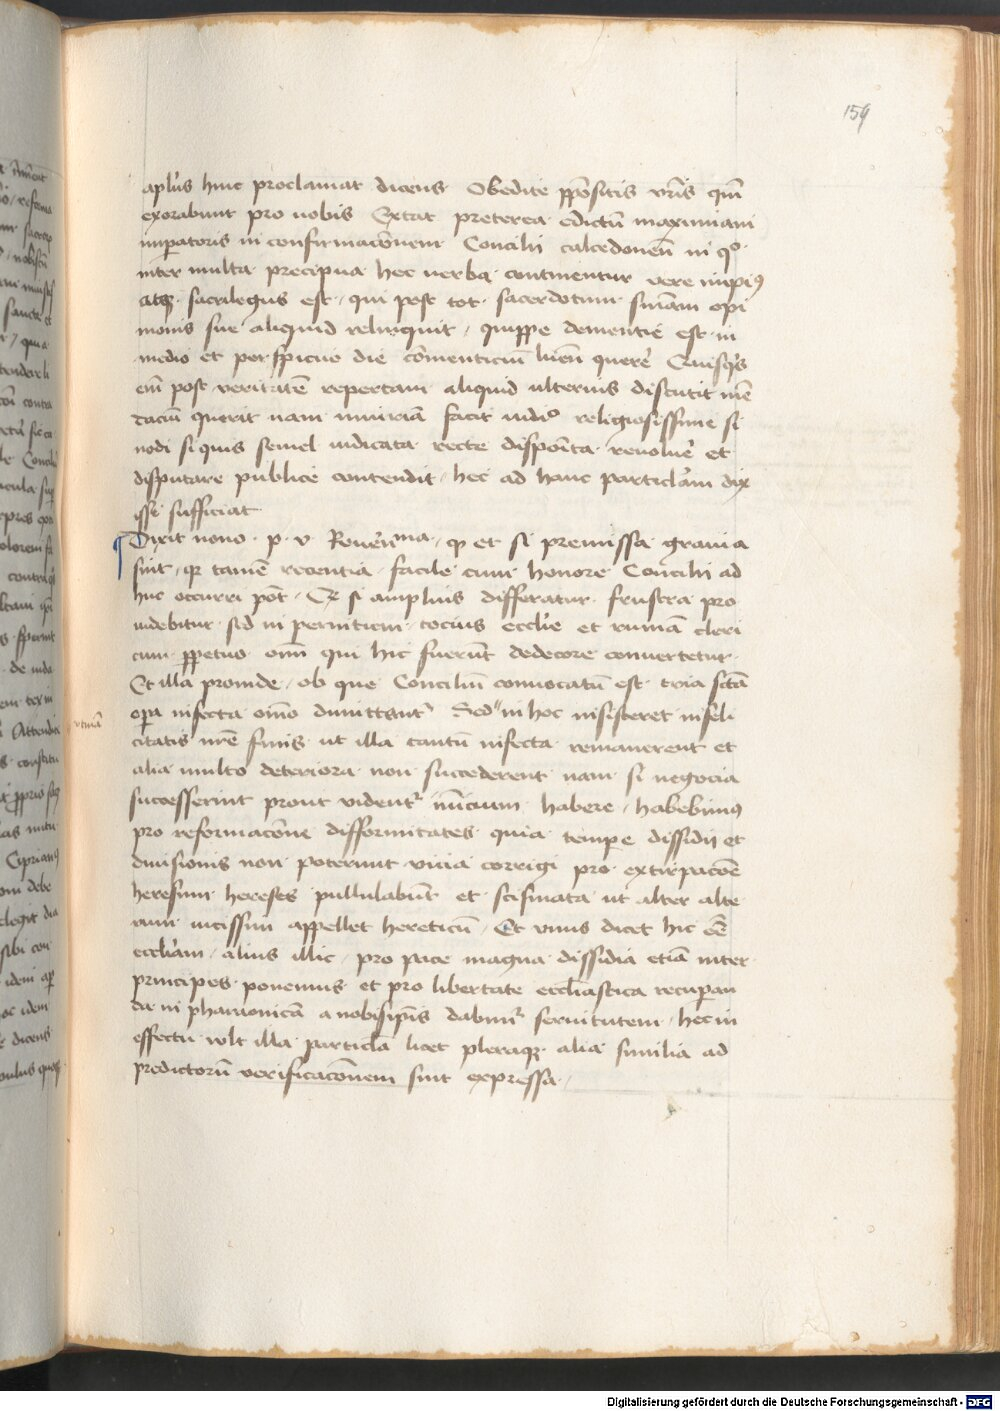 159
aplu's huic proclamat dicens Obedite p̱positis vr̄is qm̄
exorabunt pro nobis Extat preterea edictū maximiani
imp̱atoris in confirmac̄onem Concilii calcedonen̄ in qo
inter multa precipua hec verba continentur vere impi9
atq3 sacrilegus est / qui post tot sacerdotum sn̄iam opi
nionis sue aliquid relinquit / quippe dementie est in
medio et perspicuo die co̅menticiu̅ lumē querē Quisq's
em̄ post veritatē repertam aliquid ulterius discutit mē
daciū querit nam iniuriā facit iudio religiosissime si
nodi si quis semel iudicata recte disposita revoluē et
disputare publice contendit / hec ad hanc particl'am dix
isse sufficiat
Dixit nono p. v. Rever̄ma / qꝫ et si premissa gravia
sint / qꝛ tamē recentia facile cum honore Concilii ad
huc occurri pōt / Et si amplius differatur frustra pro
videbitur sed in perniciem tocius eccl'ie et ruinā cleri
cum p̱petuo om̄ qui hic fuerūt dedecore convertetur
Et illa proinde / ob que Conciliū convocatū est tria sc̄ta
op̱a infecta om̄o dimittantr Sed in hoc insisteret infeli
citatis nr̄e finis ut illa tantū infecta remanerent et
alia multo deteriora non succederent nam si negocia
successerint prout videntr inicium habere / habebim9
pro reformac̄one difformitates quia tempe dissidii et
divisionis non poterunt vicia corrigi pro extirpac̄oe
heresum hereses pullulabūt et scismata ut alter alte
rum vicissim appellet hereticū / Et unus dicet hic eē
eccl'iam / alius illic / pro pace magna dissidia etiā inter
principes ponemus et pro libertate eccl'iastica recup̱an
da in pharaonicā a nobisip̄is dabimr servitutem / hec in
effectu vult illa particl'a licet pleraq3 alia similia ad
predictorū verificac̄onem sint expressa /
Digitalisierung gefördert durch die Deutsche Forschungsgemeinschaft - DFG